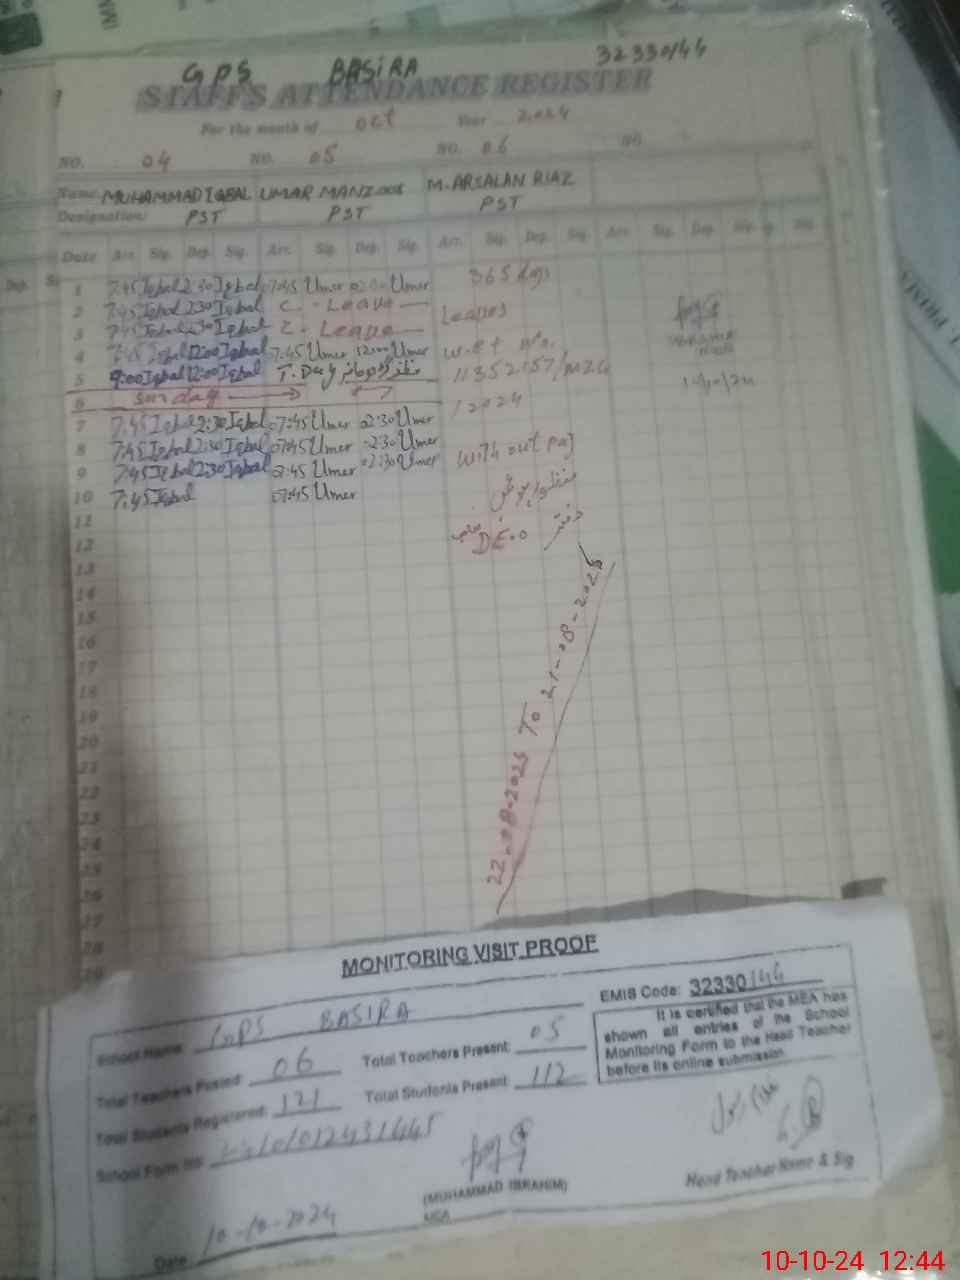 GPS BASIRA 32330144
STAFF'S ATTENDANCE REGISTER
For the month of Oct Year 2024
NO. 04 NO. 05 NO. 06 NO.
Name MUHAMMAD IQBAL UMAR MANZOOR M. ARSALAN RIAZ
Designation PST PST PST
Date Arr. Sig. Dep. Sig. Arr. Sig. Dep. Sig. Arr. Sig. Dep. Sig. Arr. Sig. Dep. Sig.
1 7:45 Iqbal 2:30 Iqbal 07:45 Umer 02:30 Umer 365 days
2 7:45 Iqbal 2:30 Iqbal C. Leave
3 7:45 Iqbal 2:30 Iqbal C. Leave Leaves
4 7:45 Iqbal 12:00 Iqbal 07:45 Umer 12:00 Umer
5 9:00 Iqbal 12:00 Iqbal T. Day
6 Sunday /2024
7 7:45 Iqbal 2:30 Iqbal 07:45 Umer 02:30 Umer
8 7:45 Iqbal 2:30 Iqbal 07:45 Umer 02:30 Umer
9 7:45 Iqbal 2:30 Iqbal 07:45 Umer 02:30 Umer with out pay
10 7:45 Iqbal 07:45 Umer
11
12 D.E.O دفتر
13
14
15
16
17
18
19
20
21
22
23
24
25
26
27
28
29
22-08-2023 To 21-08-2025
MONITORING VISIT PROOF
School Name: GPS BASIRA EMIS Code: 32330144
Total Teachers Posted: 06 Total Teachers Present: 05
Total Students Registered: 121 Total Students Present: 112
It is certified that the MEA has
shown all entries of the School
Monitoring Form to the Head Teacher
before its online submission.
School Form No:
(MUHAMMAD IBRAHIM)
MEA
Head Teacher Name & Sig
Date: 10-10-2024
10-10-24 12:44